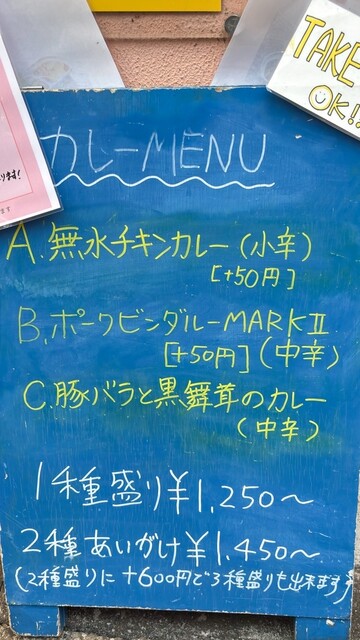 TAKE
OK!!
ります!
ます
カレーMENU
A.無水チキンカレー(小辛)
[+50円]
B.ポークビンダルーMARKⅡ
[+50円](中辛)
C.豚バラと黒舞茸のカレー
(中辛)
1種盛り¥1,250〜
2種あいがけ¥1,450〜
(2種盛りに+600円で3種盛りも出来ます)